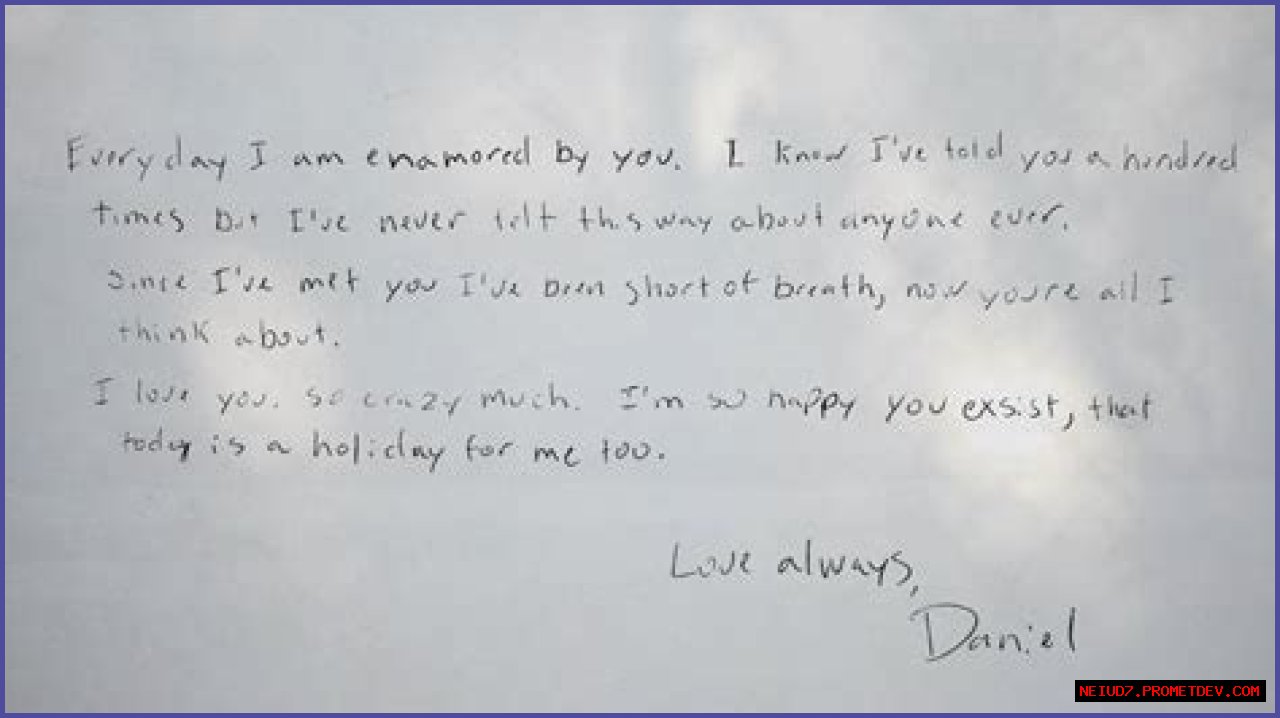 Everyday I am enamored by you. I know I've told you a hundred
times but I've never felt this way about anyone ever.
Since I've met you I've been short of breath, now youre all I
think about.
I love you. so crazy much. I'm so happy you exsist, that
today is a holiday for me too.
Love always,
Daniel
NEIUD7.PROMETDEV.COM